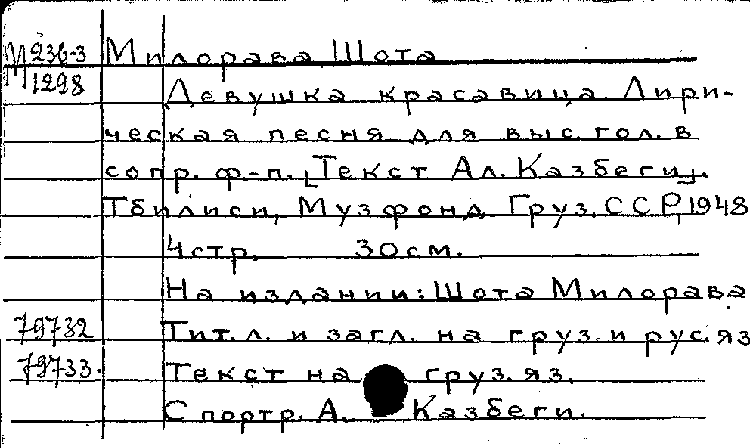 М 236-3 Милорава Шота
1298 Девушка красавица Лири-
ческая песня для выс. гол. в
сопр. ф-п. [Текст Ал. Казбеги].
Тбилиси, Музфонд Груз. ССР, 1948
4 стр. 30 см.
На издании: Шота Милорава
79732 Тит. л. и загл. на груз. и рус. яз
79733. Текст на груз. яз.
С портр. А. Казбеги.